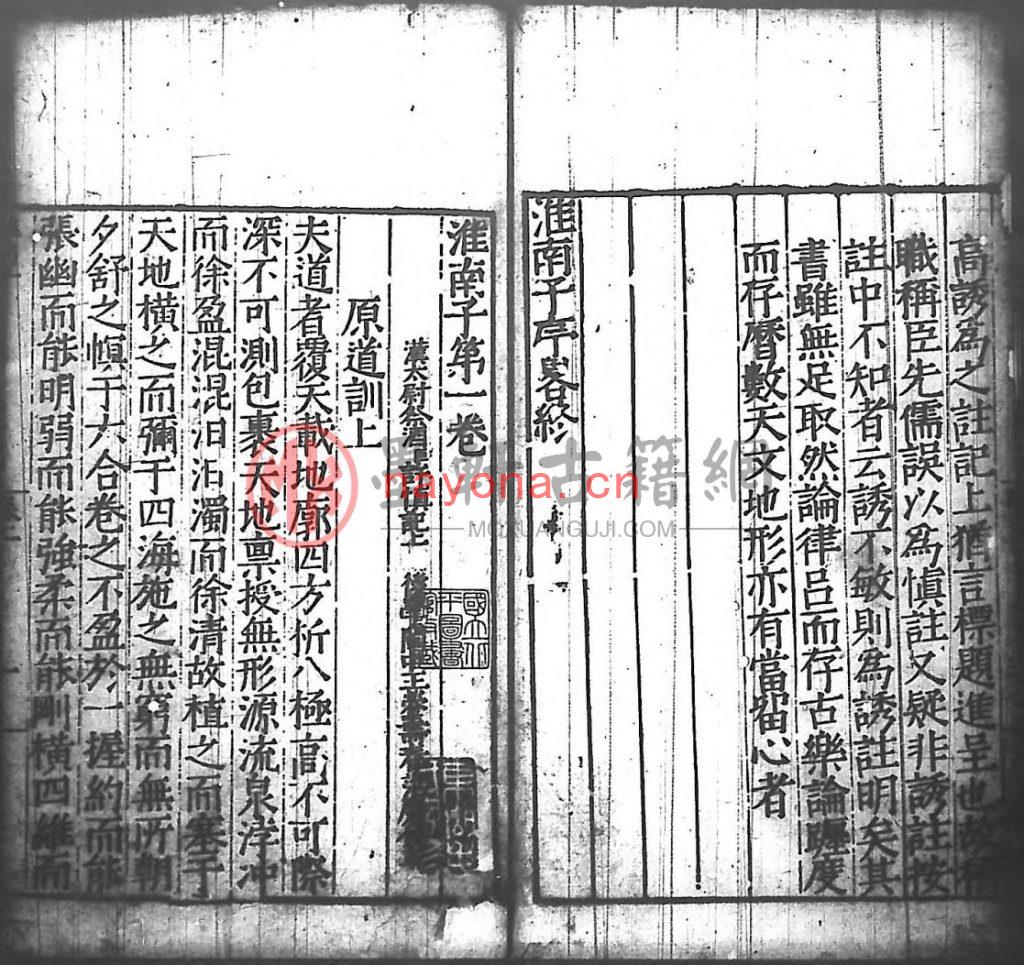 高誘爲之註記上猶言標題進呈也故稱
職稱臣先儒誤以爲慎註又疑非誘註按
註中不知者云誘不敏則爲誘註明矣其
書雖無足取然論律呂而存古樂論躔度
而存曆數天文地形亦有當留心者
淮南子序畧終
淮南子第一卷
漢太尉祭酒許慎記上 後學
原道訓上
夫道者覆天載地廓四方柝八極高不可際
深不可測包裹天地禀授無形源流泉浡沖
而徐盈混混汩汩濁而徐清故植之而塞于
天地橫之而彌于四海施之無窮而無所朝
夕舒之幎于六合卷之不盈於一握約而能
張幽而能明弱而能強柔而能剛橫四維而
國立北
平圖書
館收藏
墨軒古籍網
nayona.cn
MOXUANGUJI.COM